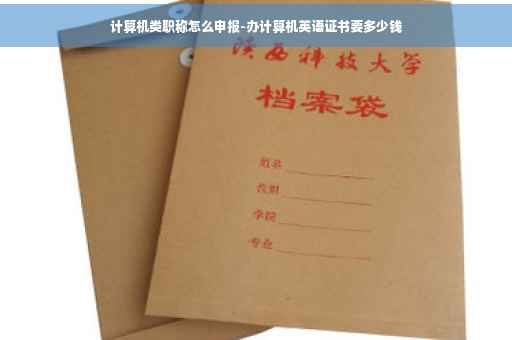 计算机类职称怎么申报-办计算机英语证书要多少钱
陕西科技大学
档案袋
姓名
性别
学院
专业